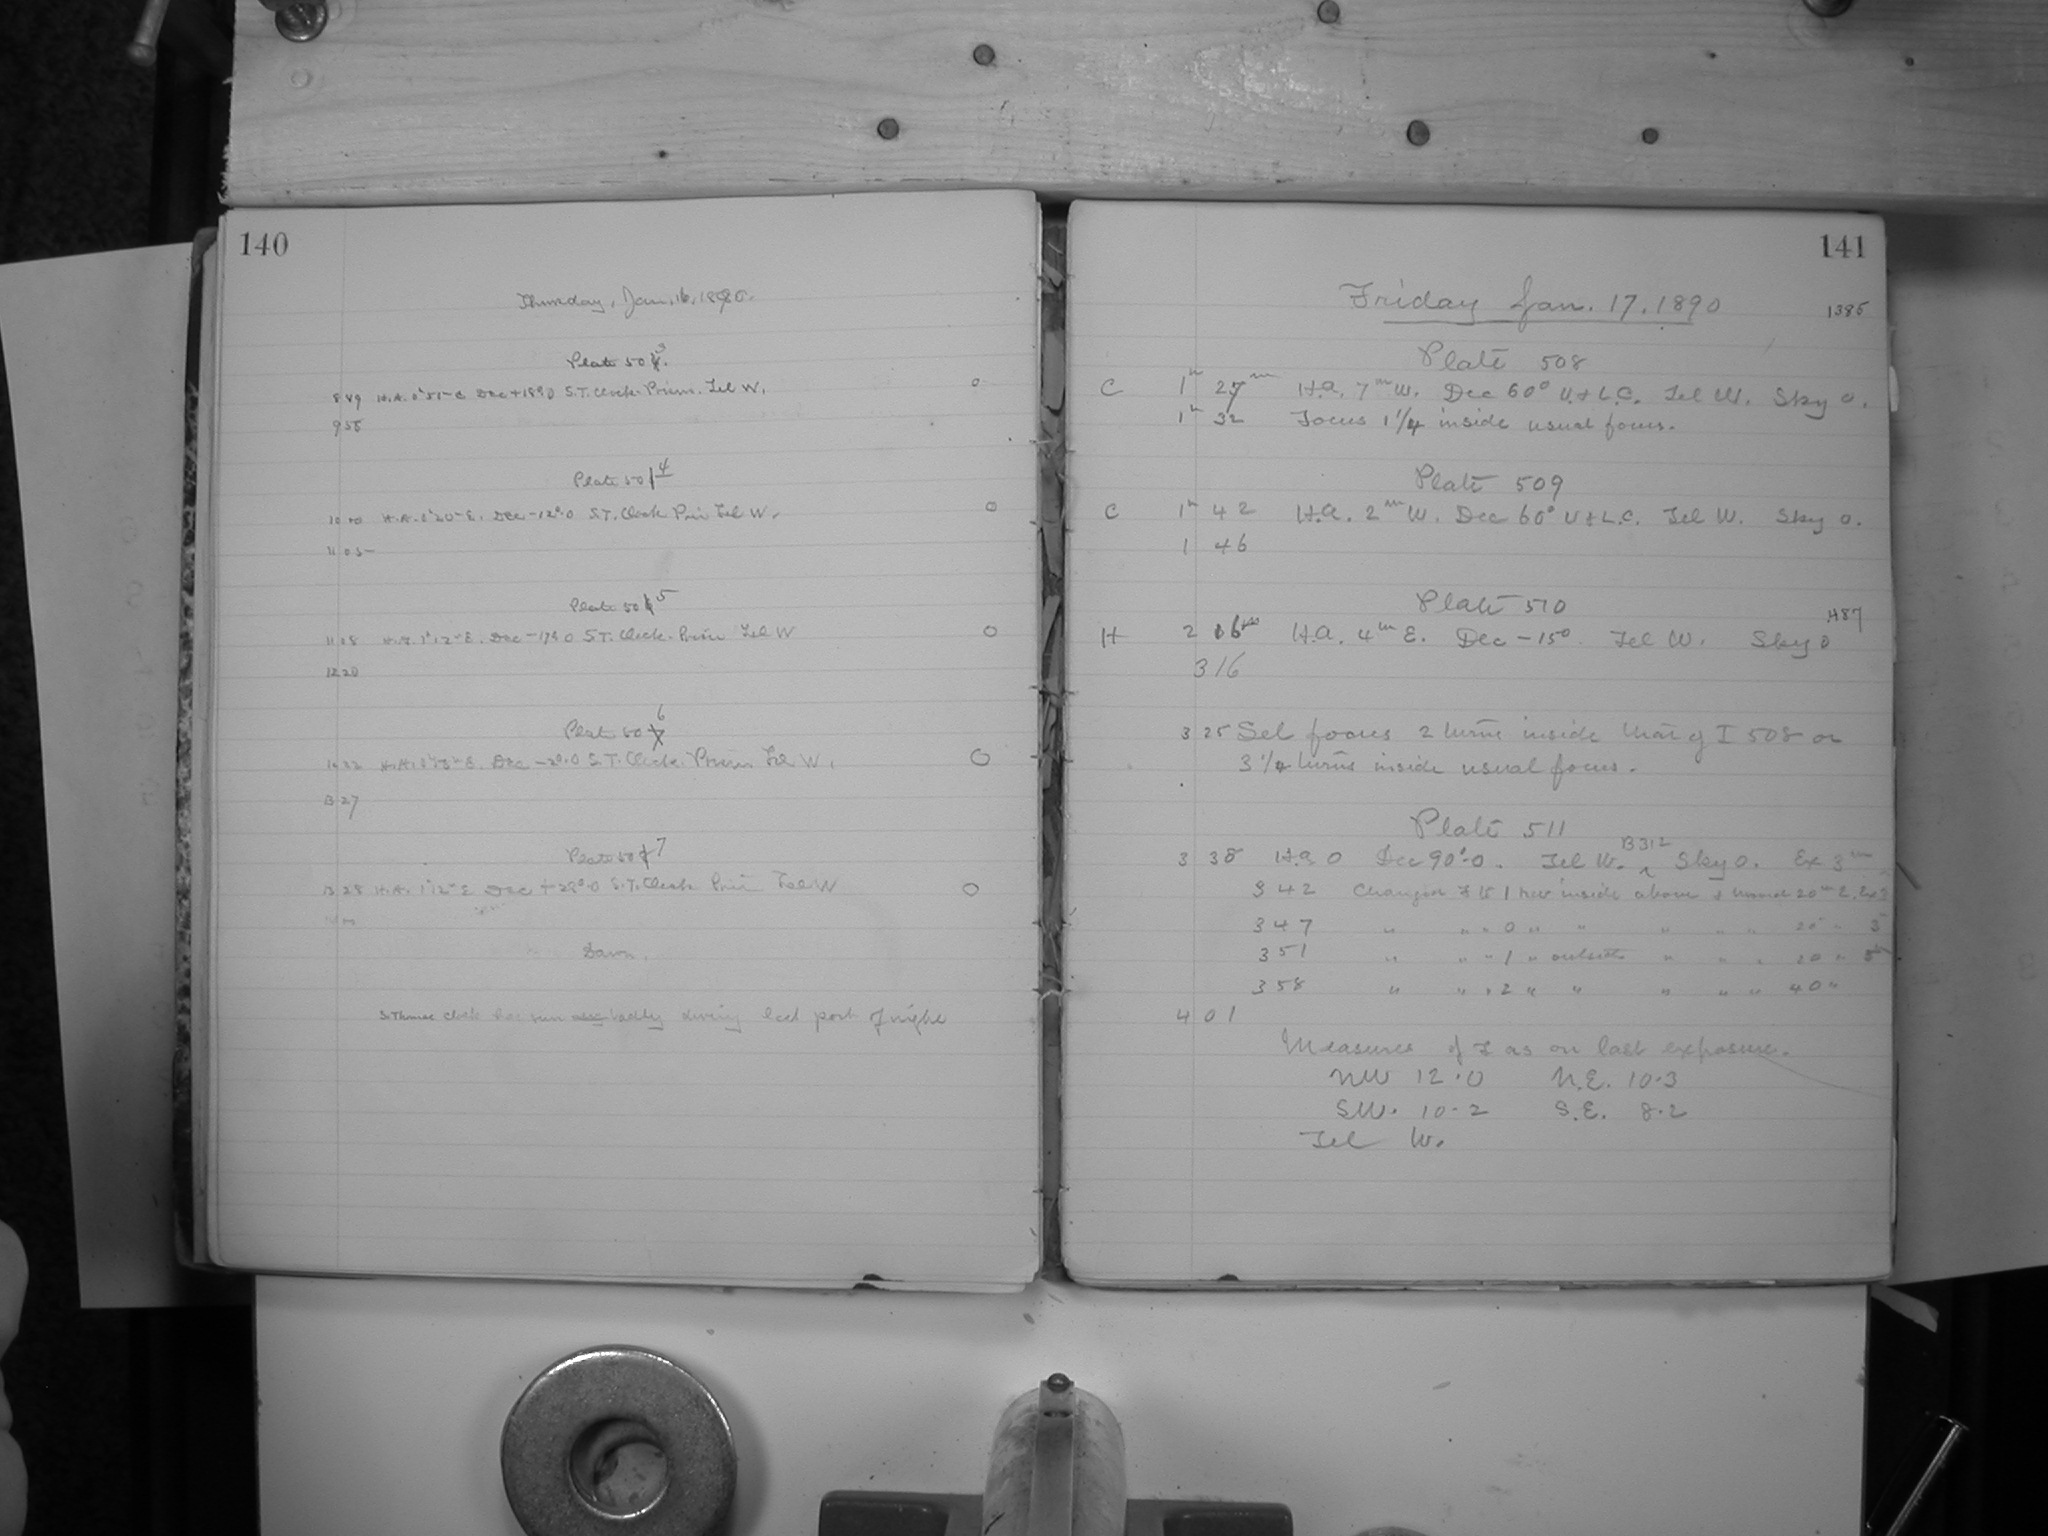 140
Thursday, Jan. 16, 1890.
Plate 503.
8 49 H.A. 0h 51m E Dec +18°.0 S.T. Clock Prism. Tel W. 0
9 58
Plate 504
10 00 H.A. 0h 20m E. Dec -12°.0 S.T. Clock Pris Tel W. 0
11 05
Plate 505
11 08 H.A. 1h 12m E. Dec -17°.0 S.T. Clock. Prism Tel W 0
12 20
Plate 506
H.A. E. Dec S.T. Clock. Prism Tel W. 0
13 27
Plate 507
13 28 H.A. 1h 12m E Dec +28°.0 S.T. Clock Pris Tel W 0
Dawn.
S. Thread clock has run badly during last part of night
141
Friday Jan. 17. 1890 1385
Plate 508
C 1h 27m H.A. 7m W. Dec 60° U. & L.C. Tel W. Sky 0.
1h 32 Focus 1 1/4 inside usual focus.
Plate 509
C 1h 42 H.A. 2m W. Dec 60° U & L.C. Tel W. Sky 0.
1 46
Plate 510 H87
H 2 16m H.A. 4m E. Dec -15°. Tel W. Sky 0
3 16
3 25 Set focus 2 turns inside that of I 508 or
3 1/4 turns inside usual focus.
Plate 511
3 38 H.A. 0 Dec 90°.0. Tel W. B312 Sky 0. Ex 3m
3 42 Changed F to 1 rev inside above & moved 20m E. Ex 3
3 47 " " " 0 " " " " " 20 " 3
3 51 " " " 1 " outside " " " 20 "
3 58 " " " 2 " " " " " 40 "
4 01
Measures of F as on last exposure.
NW 12.0 N.E. 10.3
SW. 10.2 S.E. 8.2
Tel W.